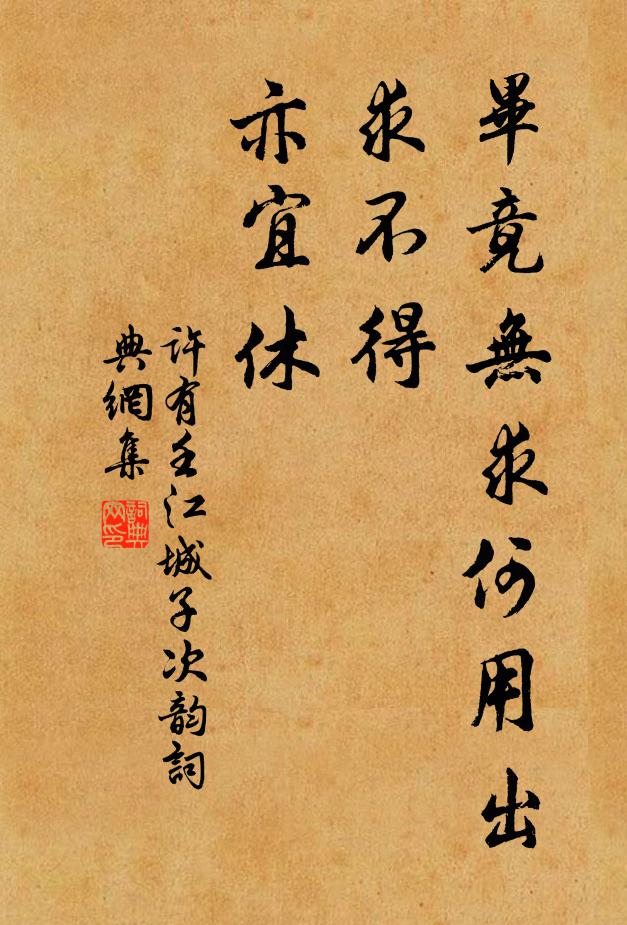 畢竟無求何用出
求不得
亦宜休
許有壬江城子次韵詞
典網集
詞典
网印